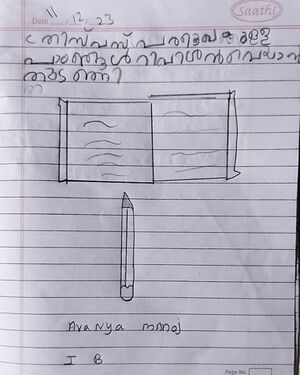 Saathi
Date 11/12/23
ക്രിസ്മസ് പരീക്ഷകുള്ള
പാഠങ്ങൾ റിവിശൻചെയ്യാൻ
തുടങ്ങി
Avanya manoj
I B
Page No.